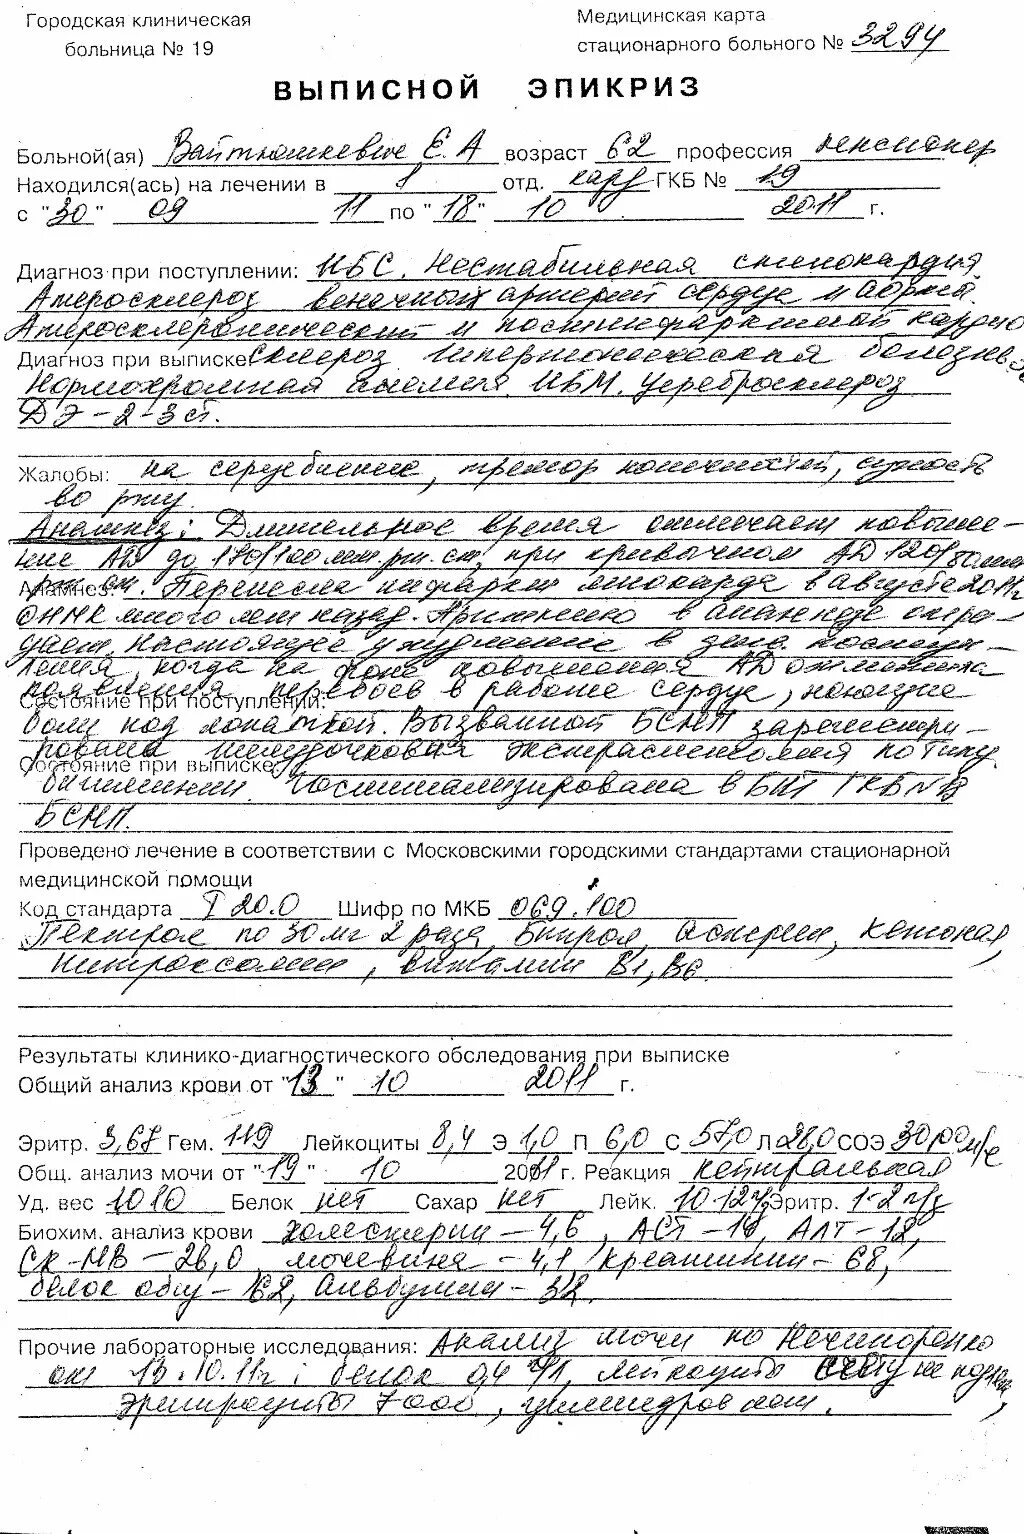 Городская клиническая
больница № 19
Медицинская карта
стационарного больного № 3294
ВЫПИСНОЙ ЭПИКРИЗ
Больной(ая) Е. А возраст 62 профессия пенсионер
Находился(ась) на лечении в 1 отд. кард ГКБ № 19
с "30" 09 11 по "18" 10 2011 г.
Диагноз при поступлении: ИБС. Нестабильная стенокардия.
Атеросклероз венечных артерий сердца и аорты.
Атеросклеротический и постинфарктный кардио
Диагноз при выписке склероз Гипертоническая болезнь
Нормохромная анемия. ИБМ. Церебросклероз
ДЭ-2-3 ст.
Жалобы: на сердцебиение, тремор конечностей, сухость
во рту.
Анамнез: Длительное время отмечает повыше-
ние АД до 170/100 мм.рт.ст, при привычном АД 120/80 мм
рт.ст. Перенесла инфаркт миокарда в августе 2011г
Анамнез:
ОНМК много лет назад. в анамнезе отри-
цает. Настоящее ухудшение в день поступ-
ления, когда на фоне повышения АД отметила
появления перебоев в работе сердца, ноющие
Состояние при поступлении:
боли под лопаткой. Вызванной БСМП зарегистри-
рована желудочковая экстрасистолия по типу
Состояние при выписке
бигеминии. Госпитализирована в БИТ ГКБ №19
БСМП.
Проведено лечение в соответствии с Московскими городскими стандартами стационарной
медицинской помощи
Код стандарта I 20.0 Шифр по МКБ 069.100
Пектрол по 30 мг 2 раза, Бипрол, аспирин, Кетонал,
Нитроксолин, витамин В1, В6.
Результаты клинико-диагностического обследования при выписке
Общий анализ крови от "13" 10 2011 г.
Эритр. 3,67 Гем. 119 Лейкоциты 8,4 Э 1,0 П 6,0 С 57,0 Л 28,0 СОЭ 30 мм/с
Общ. анализ мочи от "19" 10 2011 г. Реакция нейтральная
Уд. вес 1010 Белок нет Сахар нет Лейк. 10-12 Эритр. 1-2 п/з
Биохим. анализ крови холестерин - 4,6, АСТ - 16, АЛТ - 12,
СК-МВ - 26,0, мочевина - 4,1, креатинин - 68,
белок общ - 62, Альбумин - 32.
Прочие лабораторные исследования: Анализ мочи по Нечипоренко
от 13.10.11г: белок 0,4 г/л, лейкоциты
Эритроциты 7000, цилиндров нет.